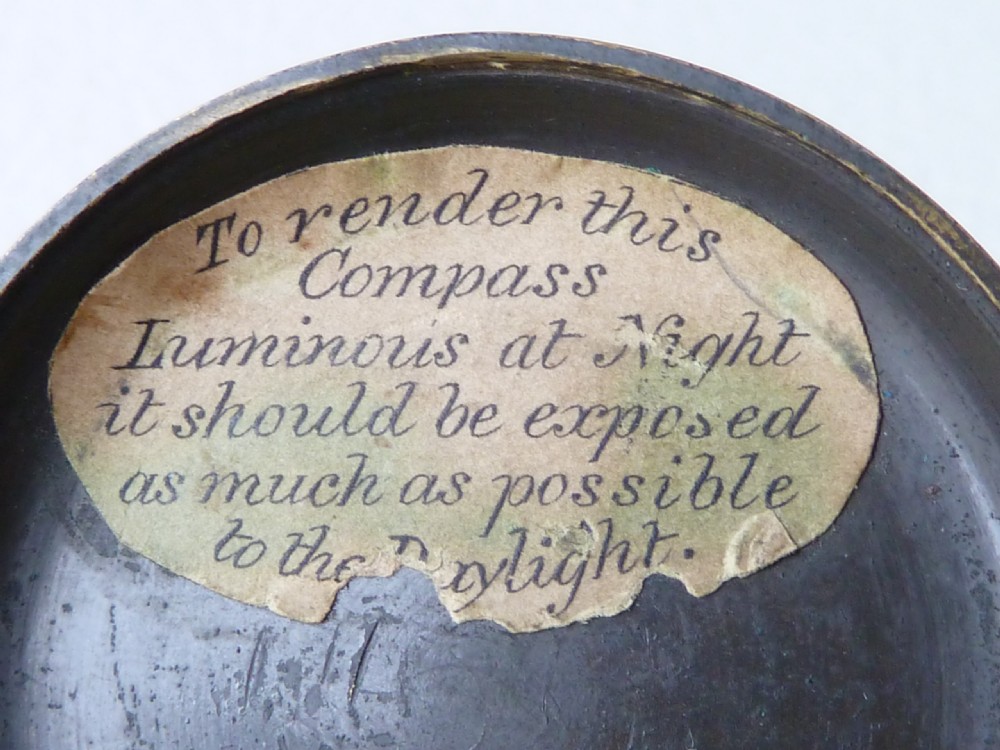 To render this
Compass
Luminous at Night
it should be exposed
as much as possible
to the Daylight.